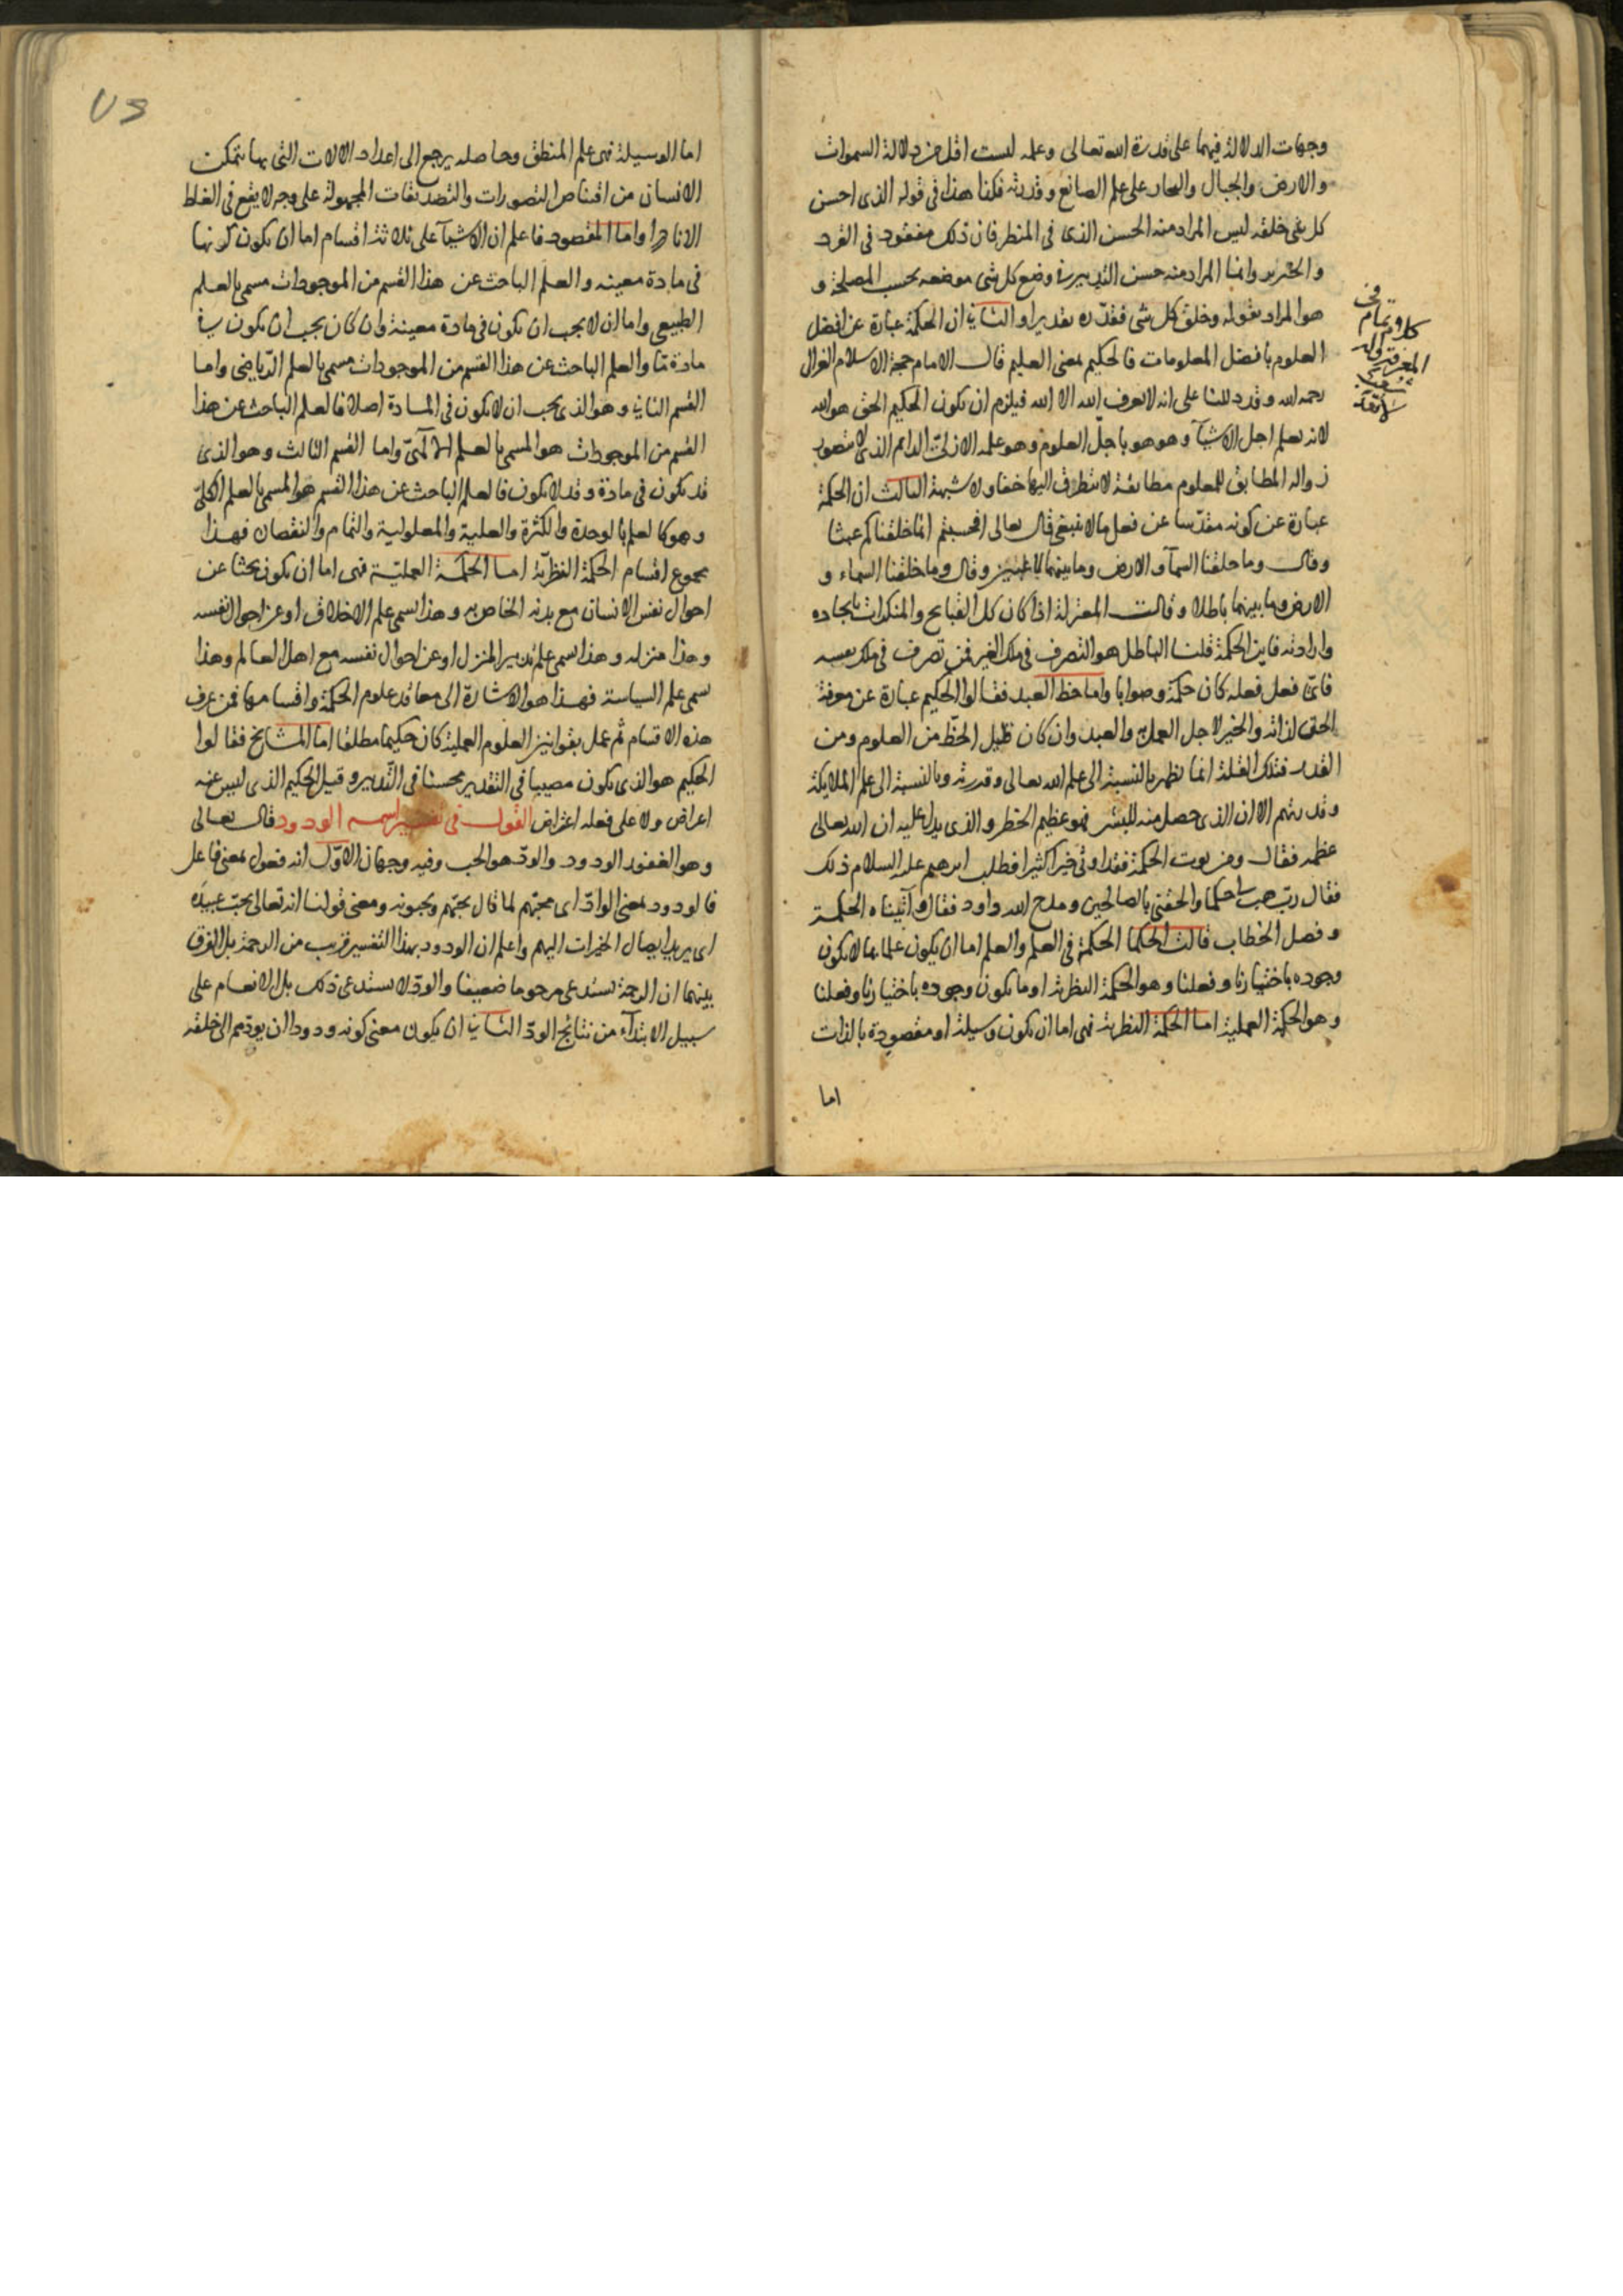 وجهات الدلالة فيهما على قدرة الله تعالى وعلمه ليست اقل من دلالة السموات
والارض والجبال والبحار على علم الصانع وقدرته فكذا هذا في قوله الذي احسن
كل شي خلقه ليس المراد منه الحسن الذي في المنظر فان ذلك مفقود في القرد
والخنزير وانما المراد منه حسن التدبير في وضع كل شي موضعه بحسب المصلحة و
هو المراد بقوله وخلق كل شي فقدّره تقديرا والثاني ان الحكمة عبارة عن افضل
العلوم بافضل المعلومات فالحكيم بمعنى العليم قال الامام حجة الاسلام الغزالي
رحمه الله وقد دللنا على انه لا يعرف الله الا الله فيلزم ان يكون الحكيم الحق هو الله
لانه يعلم اجل الاشيآ وهو هو باجلّ العلوم وهو علمه الازليّ الدايم الذي لا يتصور
زواله المطابق للمعلوم مطابقة لا يتطرق اليها خفا ولا شبهة الثالث ان الحكمة
عبارة عن كونه مقدّسا عن فعل ما لا ينبغي قال تعالى افحسبتم انما خلقناكم عبثا
وقال وما خلقنا السمآ والارض وما بينهما لاعبين وقال وما خلقنا السماء و
الارض وما بينهما باطلا وقالت المعتزلة اذا كان كل القبايح والمنكرات بايجاده
وارادته فاين الحكمة قلنا الباطل هو التصرف في ملك الغير فمن تصرف في ملك نفسه
فايّ فعل فعله كان حكمة وصوابا واما حظ العبد فقالوا الحكيم عبارة عن معرفة
الحق لذاته والخير لاجل العمل به والعبد وان كان قليل الحظّ من العلوم ومن
القدر فتلك القلة انما تظهر بالنسبة الى علم الله تعالى وقدرته وبالنسبة الى علم الملايكة
وقدرتهم الا ان الذي حصل منه للبشر فهو عظيم الخطر والذي يدل عليه ان الله تعالى
عظمه فقال ومن يوت الحكمة فقد اوتي خيرا كثيرا فطلب ابرهيم عليه السلام ذلك
فقال رب هب لي حكما والحقني بالصالحين ومدح الله داود فقال وآتيناه الحكمة
وفصل الخطاب قالت الحكما الحكمة في العلم والعلم اما ان يكون علما بما لا يكون
وجوده باختيارنا وفعلنا وهو الحكمة النظرية او ما يكون وجوده باختيارنا وفعلنا
وهو الحكمة العملية اما الحكمة النظرية فهي اما ان يكون وسيلة او مقصودة بالذات
اما
اما الوسيلة فهي علم المنطق وحاصله يرجع الى اعداد الالات التي بها يتمكن
الانسان من اقتناص التصورات والتصديقات المجهولة على وجه لا يقع في الغلط
الا نادرا واما المقصود فاعلم ان الاشيآ على ثلاثة اقسام اما ان يكون كونها
في مادة معينه والعلم الباحث عن هذا القسم من الموجودات مسمى بالعلم
الطبيعي واما ان لا يجب ان يكون في مادة معينة وان كان يجب ان يكون في
مادة مّا والعلم الباحث عن هذا القسم من الموجودات مسمى بالعلم الرّياضي واما
القسم الثاني وهو الذي يجب ان لا يكون في المادة اصلا فالعلم الباحث عن هذا
القسم من الموجودات هو المسمى بالعلم الالٓهيّ واما القسم الثالث وهو الذي
قد يكون في مادة وقد لا يكون فالعلم الباحث عن هذا القسم هو المسمى بالعلم الكليّ
وهو كالعلم بالوحدة والكثرة والعلية والمعلولية والتمام والنقصان فهذا
مجموع اقسام الحكمة النظريّة اما الحكمة العمليّة فهي اما ان يكون بحثا عن
احوال نفس الانسان مع بدنه الخاص به وهذا يسمى علم الاخلاق او عن احوال نفسه
وهذا منزله وهذا يسمى علم تدبير المنزل او عن احوال نفسه مع اهل العالم وهذا
يسمى علم السياسة فهذا هو الاشارة الى معاقد علوم الحكمة واقسامها فمن عرف
هذه الاقسام ثم عمل بقوانين العلوم العملية كان حكيما مطلقا امّا المشايخ فقالوا
الحكيم هو الذي يكون مصيبا في التقدير محسنا في التّدبير وقيل الحكيم الذي ليس عنه
اعراض ولا على فعله اعتراض القول في تفسير اسمه الودود قال تعالى
وهو الغفور الودود والودّ هو الحب وفيه وجهان الاوّل انه فعول بمعنى فاعل
فالودود بمعنى الوادّ اى محبّهم لما قال يحبّهم ويحبونه ومعنى قولنا انه تعالى يحبّ عبيده
اى يريد ايصال الخيرات اليهم واعلم ان الودود بهذا التفسير قريب من الرحمة بل الفرق
بينهما ان الرحمة تستدعى مرحوما ضعيفا والودّ لا يستدعى ذلك بل الانعام على
سبيل الابتدآء من نتائج الودّ الثاني ان يكون معنى كونه ودودا ان يودّهم الى خلقه